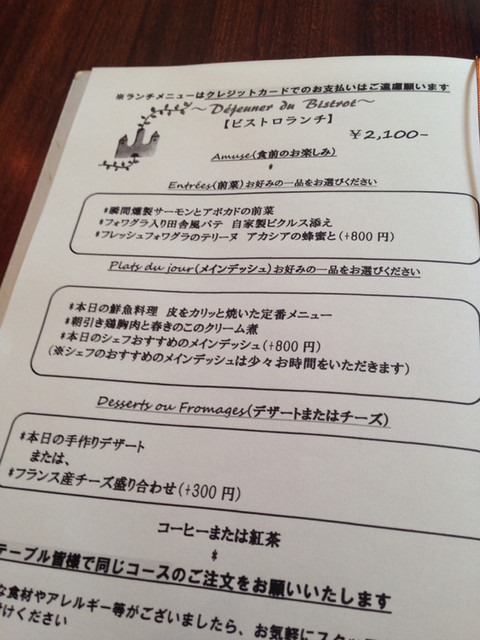 ※ランチメニューはクレジットカードでのお支払いはご遠慮願います
～Déjeuner du Bistrot～
【ビストロランチ】
￥2,100-
Amuse(食前のお楽しみ)
*
Entrées(前菜)お好みの一品をお選びください
*瞬間燻製サーモンとアボカドの前菜
*フォワグラ入り田舎風パテ 自家製ピクルス添え
*フレッシュフォワグラのテリーヌ アカシアの蜂蜜と(+800円)
Plats du jour(メインデッシュ)お好みの一品をお選びください
*本日の鮮魚料理 皮をカリッと焼いた定番メニュー
*朝引き鶏胸肉と春きのこのクリーム煮
*本日のシェフおすすめのメインデッシュ(+800円)
(※シェフのおすすめのメインデッシュは少々お時間をいただきます)
Desserts ou Fromages(デザートまたはチーズ)
*本日の手作りデザート
または、
*フランス産チーズ盛り合わせ(+300円)
コーヒーまたは紅茶
*
テーブル皆様で同じコースのご注文をお願いいたします
な食材やアレルギー等がございましたら、お気軽にスタ
けください